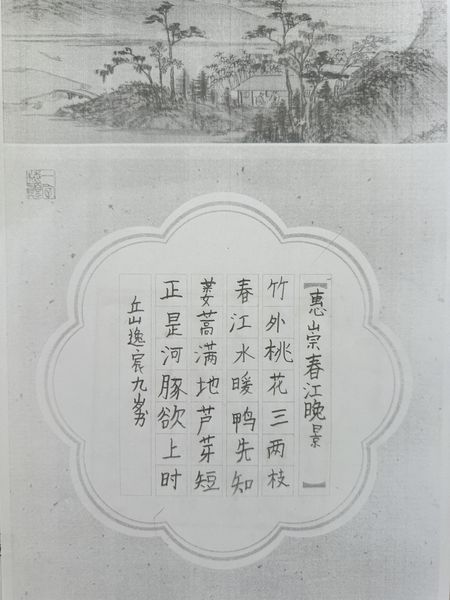 【惠崇春江晚景】
竹外桃花三两枝
春江水暖鸭先知
蒌蒿满地芦芽短
正是河豚欲上时
丘山逸宸九